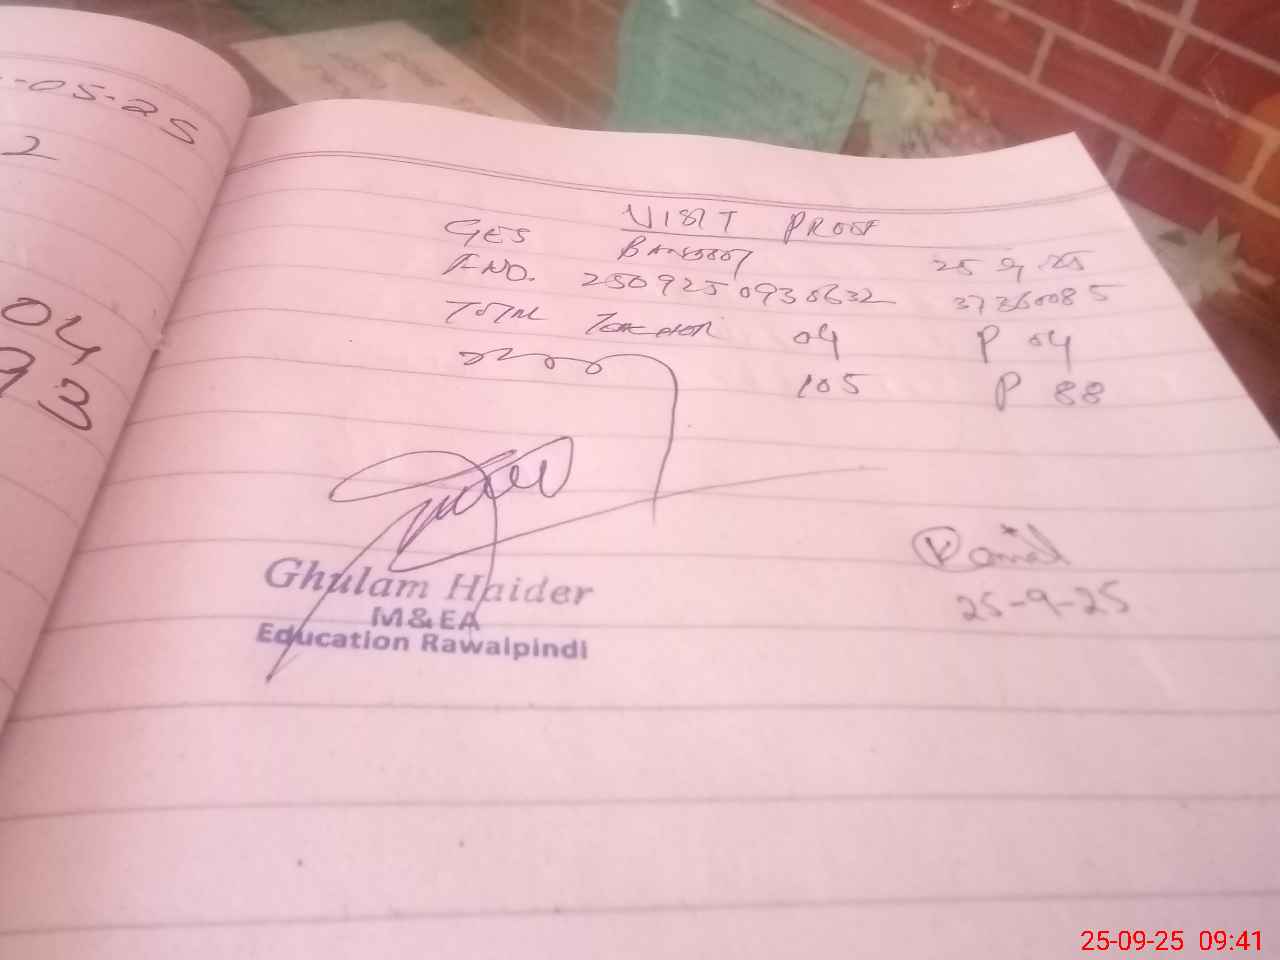 -05-25
2
04
93
VISIT PROOF
GES 25 9 25
F-NO. 2509250930632 37360085
TOTAL Teacher 04 P 04
105 P 88
Ghulam Haider
M&EA
Education Rawalpindi
25-9-25
25-09-25 09:41